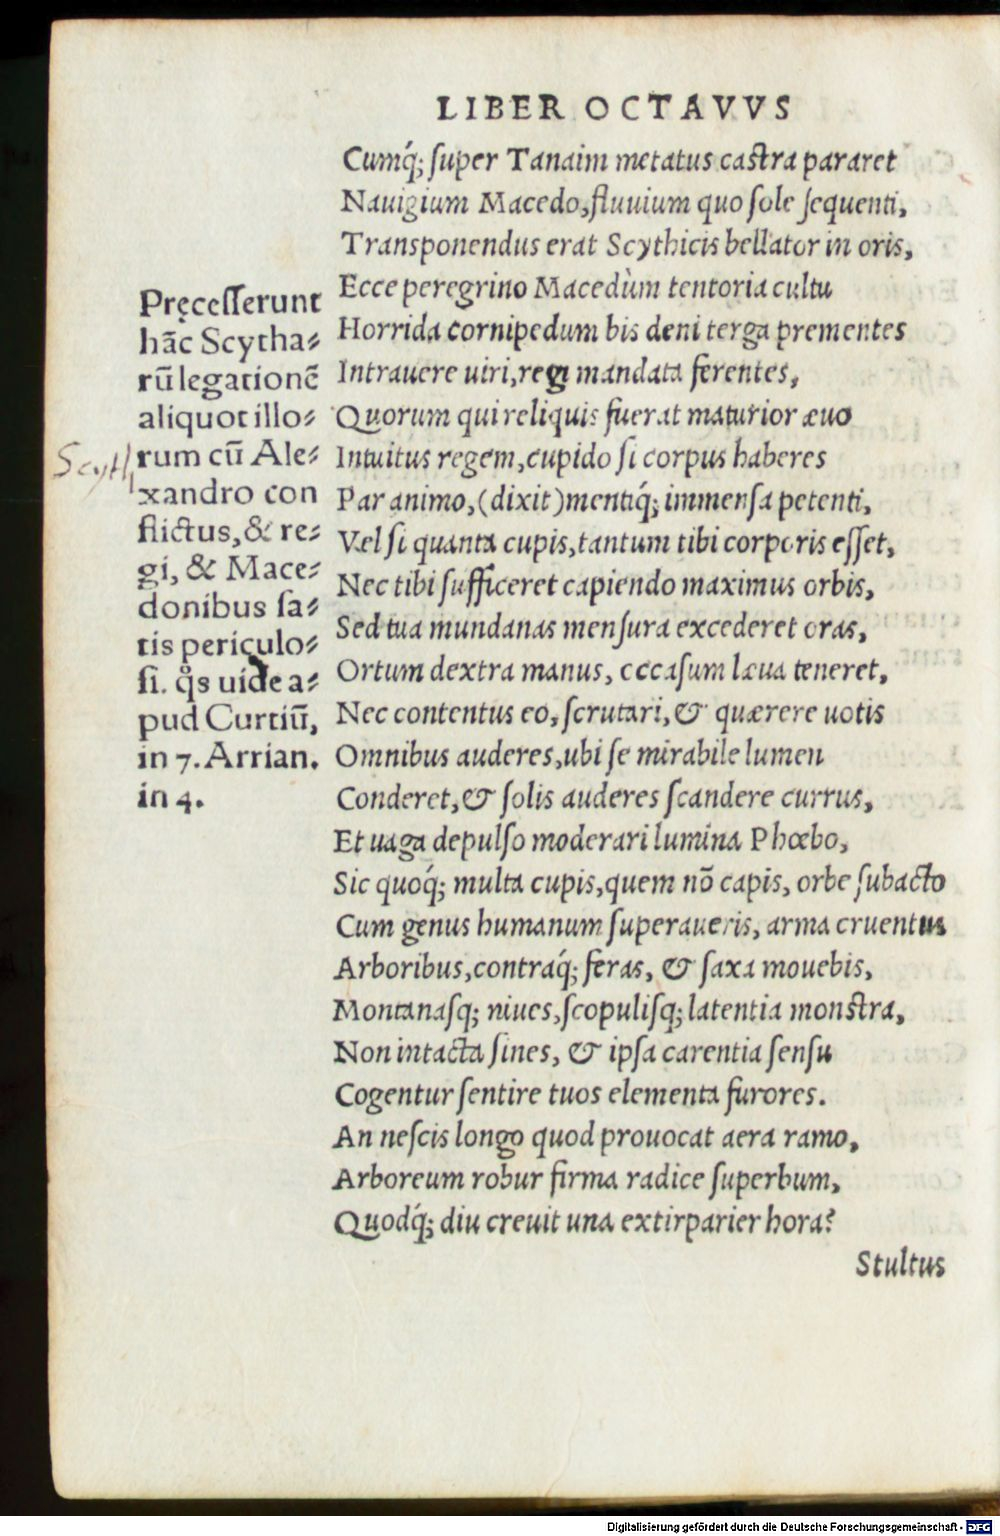 LIBER OCTAVVS
Cumq́; ſuper Tanaim metatus caſtra pararet
Nauigium Macedo, fluuium quo ſole ſequenti,
Transponendus erat Scythicis bellator in oris,
Ecce peregrino Macedùm tentoria cultu
Horrida cornipedum bis deni terga prementes
Intrauere uiri, regi mandata ferentes,
Quorum qui reliquis fuerat maturior æuo
Intuitus regem, cupido ſi corpus haberes
Par animo, (dixit) mentiq́; immenſa petenti,
Vel ſi quanta cupis, tantum tibi corporis eſſet,
Nec tibi ſufficeret capiendo maximus orbis,
Sed tua mundanas menſura excederet oras,
Ortum dextra manus, occaſum læua teneret,
Nec contentus eo, ſcrutari, & quærere uotis
Omnibus auderes, ubi ſe mirabile lumen
Conderet, & ſolis auderes ſcandere currus,
Et uaga depulſo moderari lumina Phœbo,
Sic quoq́; multa cupis, quem nõ capis, orbe ſubacto
Cum genus humanum ſuperaueris, arma cruentus
Arboribus, contraq́; feras, & ſaxa mouebis,
Montanaſq; niues, ſcopuliſq; latentia monſtra,
Non intacta ſines, & ipſa carentia ſenſu
Cogentur ſentire tuos elementa furores.
An neſcis longo quod prouocat aera ramo,
Arboreum robur firma radice ſuperbum,
Quodq́; diu creuit una extirparier hora?
Stultus
Pręceſſerunt
hãc Scytha⸗
rũ legationẽ
aliquot illo⸗
rum cũ Ale⸗
xandro con
flictus, & re⸗
gi, & Mace⸗
donibus ſa⸗
tis periculo⸗
ſi. q̊s uide a⸗
pud Curtiũ,
in 7. Arrian.
in 4.
Scyth
Digitalisierung gefördert durch die Deutsche Forschungsgemeinschaft - DFG